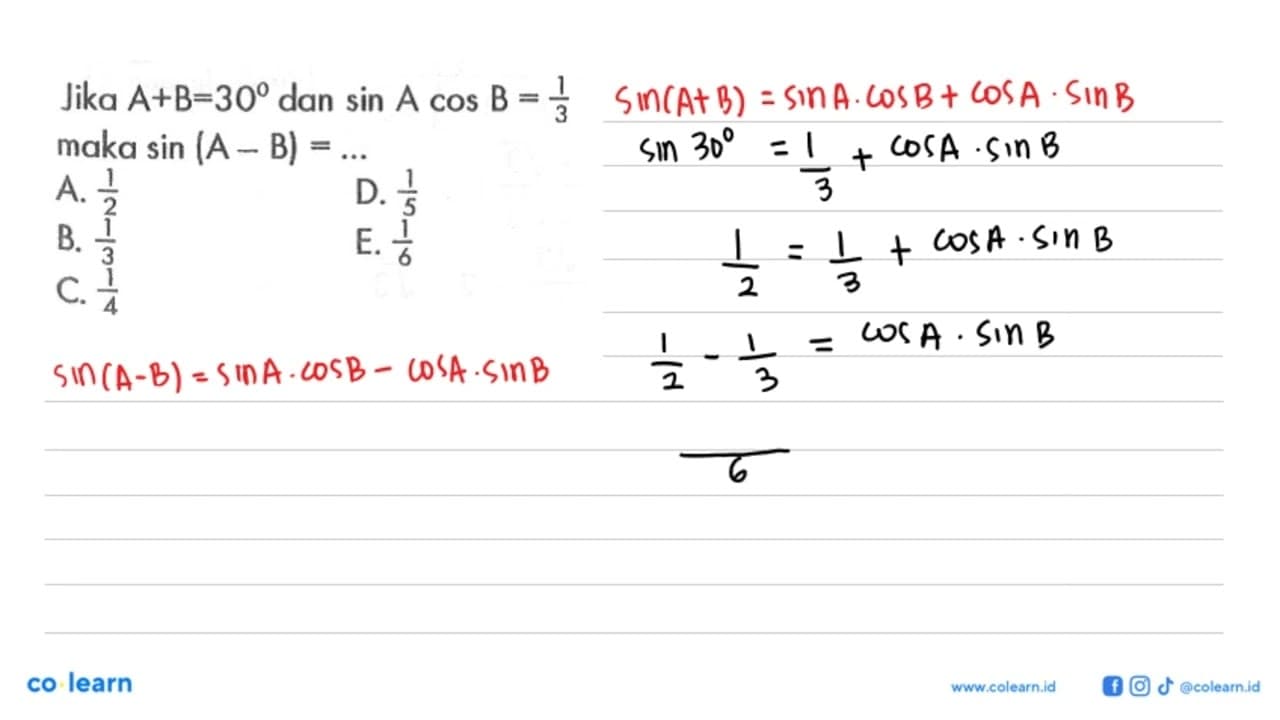 Jika A+B=30° dan sin A cos B = 1/3
maka sin (A – B) = ...
A. 1/2
B. 1/3
C. 1/4
D. 1/5
E. 1/6
sin(A-B) = sin A . cos B - cos A . sin B
sin(A+B) = sin A . cos B + cos A . sin B
sin 30° = 1/3 + cos A . sin B
1/2 = 1/3 + cos A . sin B
1/2 - 1/3 = cos A . sin B
/6
co learn
www.colearn.id
@colearn.id